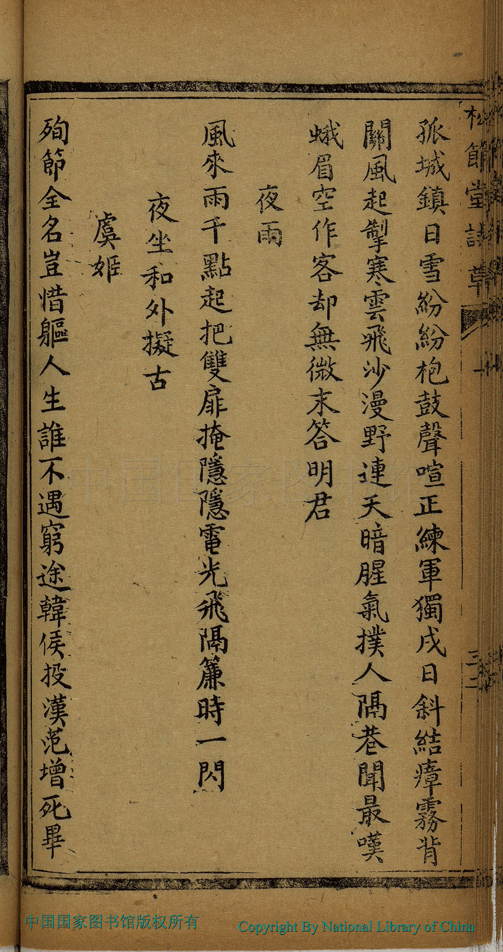 松節堂詩草
孤城鎮日雪紛紛枹鼓聲喧正練軍獨戍日斜結瘴霧背
關風起掣寒雲飛沙漫野連天暗腥氣撲人隔巷聞最嘆
蛾眉空作客却無微末答明君
夜雨
風來雨千點起把雙扉掩隱隱電光飛隔簾時一閃
夜坐和外擬古
虞姬
殉節全名豈惜軀人生誰不遇窮途韓侯投漢范增死畢
中国国家图书馆
中国国家图书馆版权所有
Copyright By National Library of China